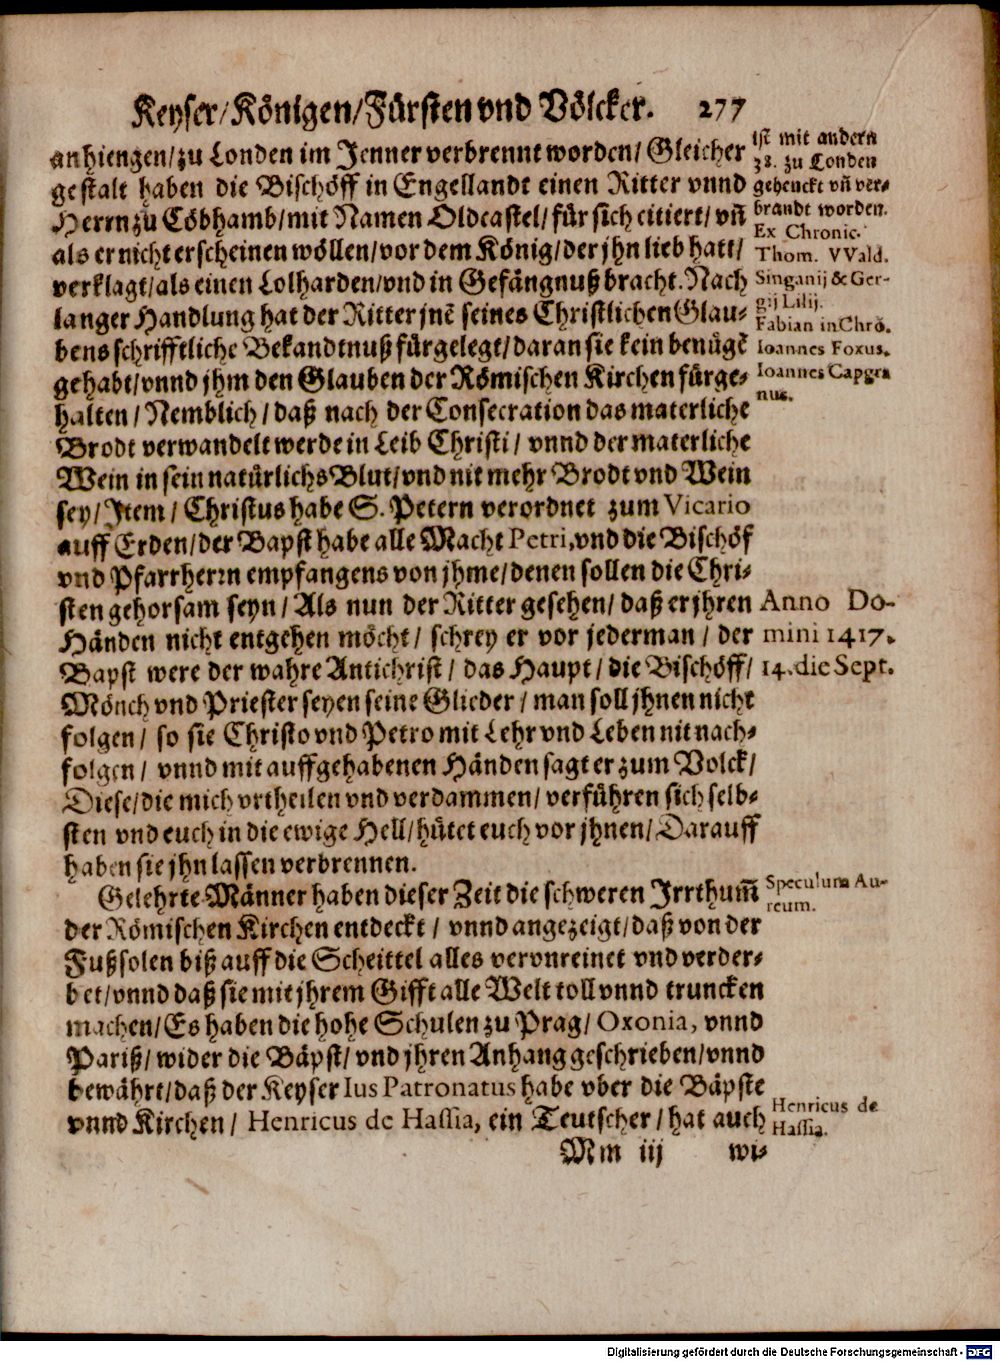 Keyser/Königen/Fürsten vnd Völcker. 277
anhiengen/zu Londen im Jenner verbrennt worden/Gleicher
gestalt haben die Bischöff in Engellandt einen Ritter vnnd
Herrn zu Cöbhamb/mit Namen Oldcastel/für sich citiert/vñ
als er nicht erscheinen wöllen/vor dem König/der jhn lieb hatt/
verklagt/als einen Lolharden/vnd in Gefängnuß bracht. Nach
langer Handlung hat der Ritter jnē seines Christlichen Glau-
bens schrifftliche Bekandtnuß fürgelegt/daran sie kein benügē
gehabt/vnnd jhm den Glauben der Römischen Kirchen fürge-
halten/Nemblich/daß nach der Consecration das materliche
Brodt verwandelt werde in Leib Christi/vnnd der materliche
Wein in sein natürlichs Blut/vnd nit mehr Brodt vnd Wein
sey/Item/Christus habe S. Petern verordnet zum Vicario
auff Erden/der Bapst habe alle Macht Petri, vnd die Bischöf
vnd Pfarrherrn empfangens von jhme/denen sollen die Chri-
sten gehorsam seyn/Als nun der Ritter gesehen/daß er jhren
Händen nicht entgehen möcht/schrey er vor jederman/der
Bapst were der wahre Antichrist/das Haupt/die Bischöff/
Mönch vnd Priester seyen seine Glieder/man soll jhnen nicht
folgen/so sie Christo vnd Petro mit Lehr vnd Leben nit nach-
folgen/vnnd mit auffgehabenen Händen sagt er zum Volck/
Diese/die mich vrtheilen vnd verdammen/verführen sich selb-
sten vnd euch in die ewige Hell/hütet euch vor jhnen/Darauff
haben sie jhn lassen verbrennen.
Gelehrte Männer haben dieser Zeit die schweren Irrthum̄
der Römischen Kirchen entdeckt/vnnd angezeigt/daß von der
Fußsolen biß auff die Scheittel alles vervnreinet vnd verder-
bet/vnnd daß sie mit jhrem Gifft alle Welt toll vnnd truncken
machen/Es haben die hohe Schulen zu Prag/Oxonia, vnnd
Pariß/wider die Bäpst/vnd jhren Anhang geschrieben/vnnd
bewährt/daß der Keyser Ius Patronatus habe vber die Bäpste
vnnd Kirchen/Henricus de Hassia, ein Teutscher/hat auch
Mm iij wi-
ist mit andern
38. zu Londen
gehenckt vñ ver-
brandt worden.
Ex Chronic.
Thom. VVald.
Singanij & Ger-
gij Lilij.
Fabian in Chrō.
Ioannes Foxus.
Ioannes Capgra
nus.
Anno Do-
mini 1417.
14. die Sept.
Speculum Au-
reum.
Henricus de
Hassia.
Digitalisierung gefördert durch die Deutsche Forschungsgemeinschaft - DFG